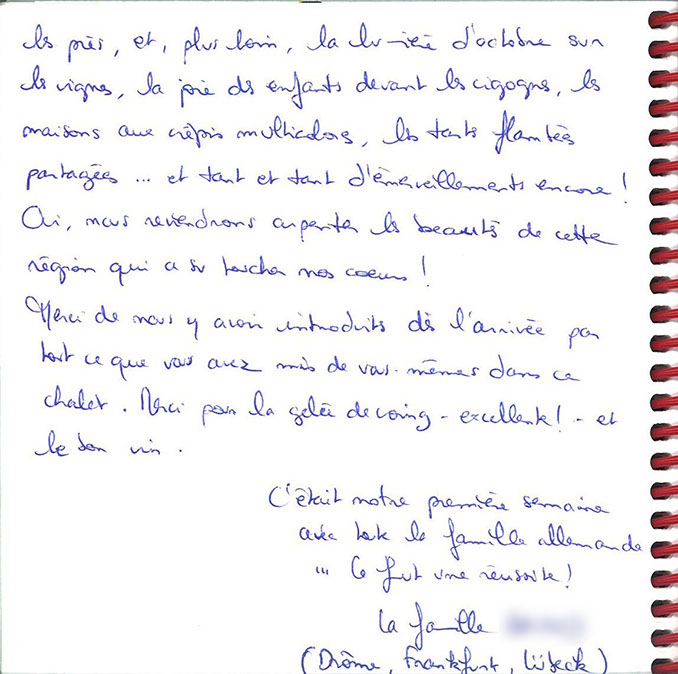 les près, et, plus loin, la lumière d'octobre sur
les vignes, la joie des enfants devant les cigognes, les
maisons aux crépis multicolores, les tartes flambées
partagées ... et tant et tant d'émerveillements encore !
Oui, nous reviendrons arpenter les beautés de cette
région qui a su toucher nos coeurs !
Merci de nous y avoir introduits dès l'arrivée par
tout ce que vous avez mis de vous-mêmes dans ce
chalet. Merci pour la gelée de coing - excellente ! - et
le bon vin.
C'était notre première semaine
avec toute la famille allemande
... Ce fut une réussite !
La famille
(Drôme, Frankfurt, Lübeck)